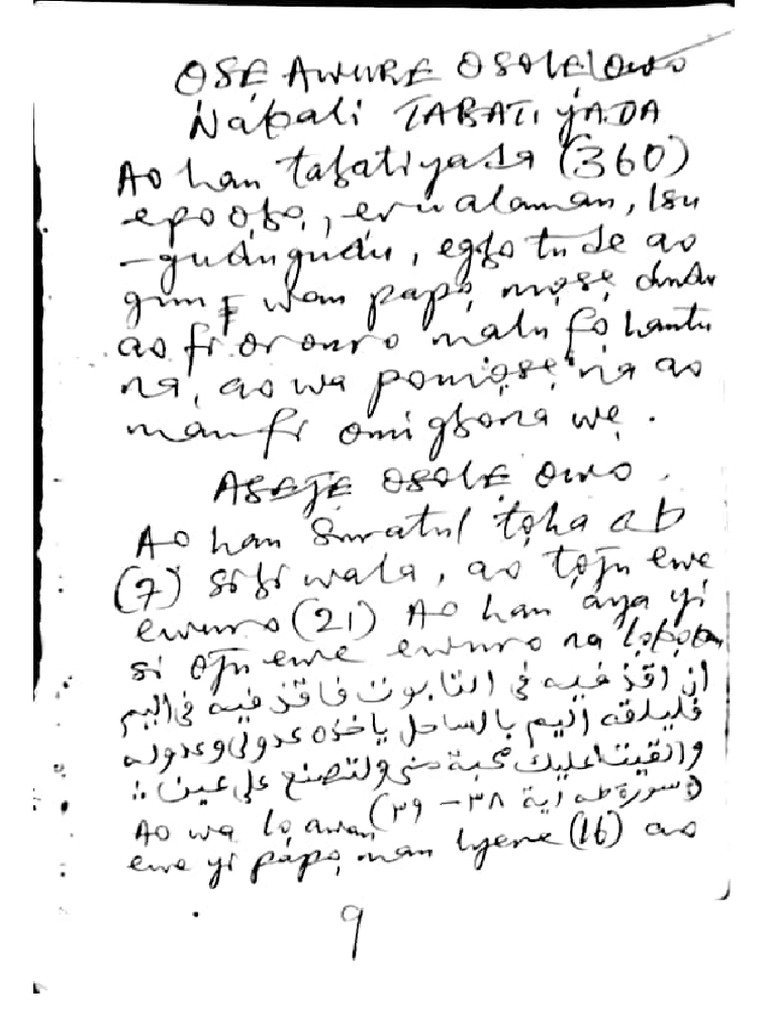 ỌSẸ AWURE OSOLE Owo
Nakali TABATI YADA
Ao han tabatiyada (360)
epo ọbọ, eru alaman, Isu
-guánguán, egbo tude ao
gun wọn papọ mọsẹ dudu
ao fi or onro matu fọ hantu
na, ao wa pomọsẹ na ao
manfi omi gbona wẹ.
ASEJE OSOLE Owo.
Ao han Suratul tọha ab
(7) sibi wala, ao tọju ewe
ewuro (21) Ao han aya yi
si oju ewe ewuro na lọkọkan
ان اقذ فيه في التابوت فاقذ فيه في اليم
فليلقه اليم بالساحل ياخذه عدولي وعدوله
والقيت عليك محبة مني ولتصنع على عين :.
(سورة طه آية ٣٨ – ٣٩)
Ao wa lọ awọn
ewe yi papọ man Iyere (16) ao
9